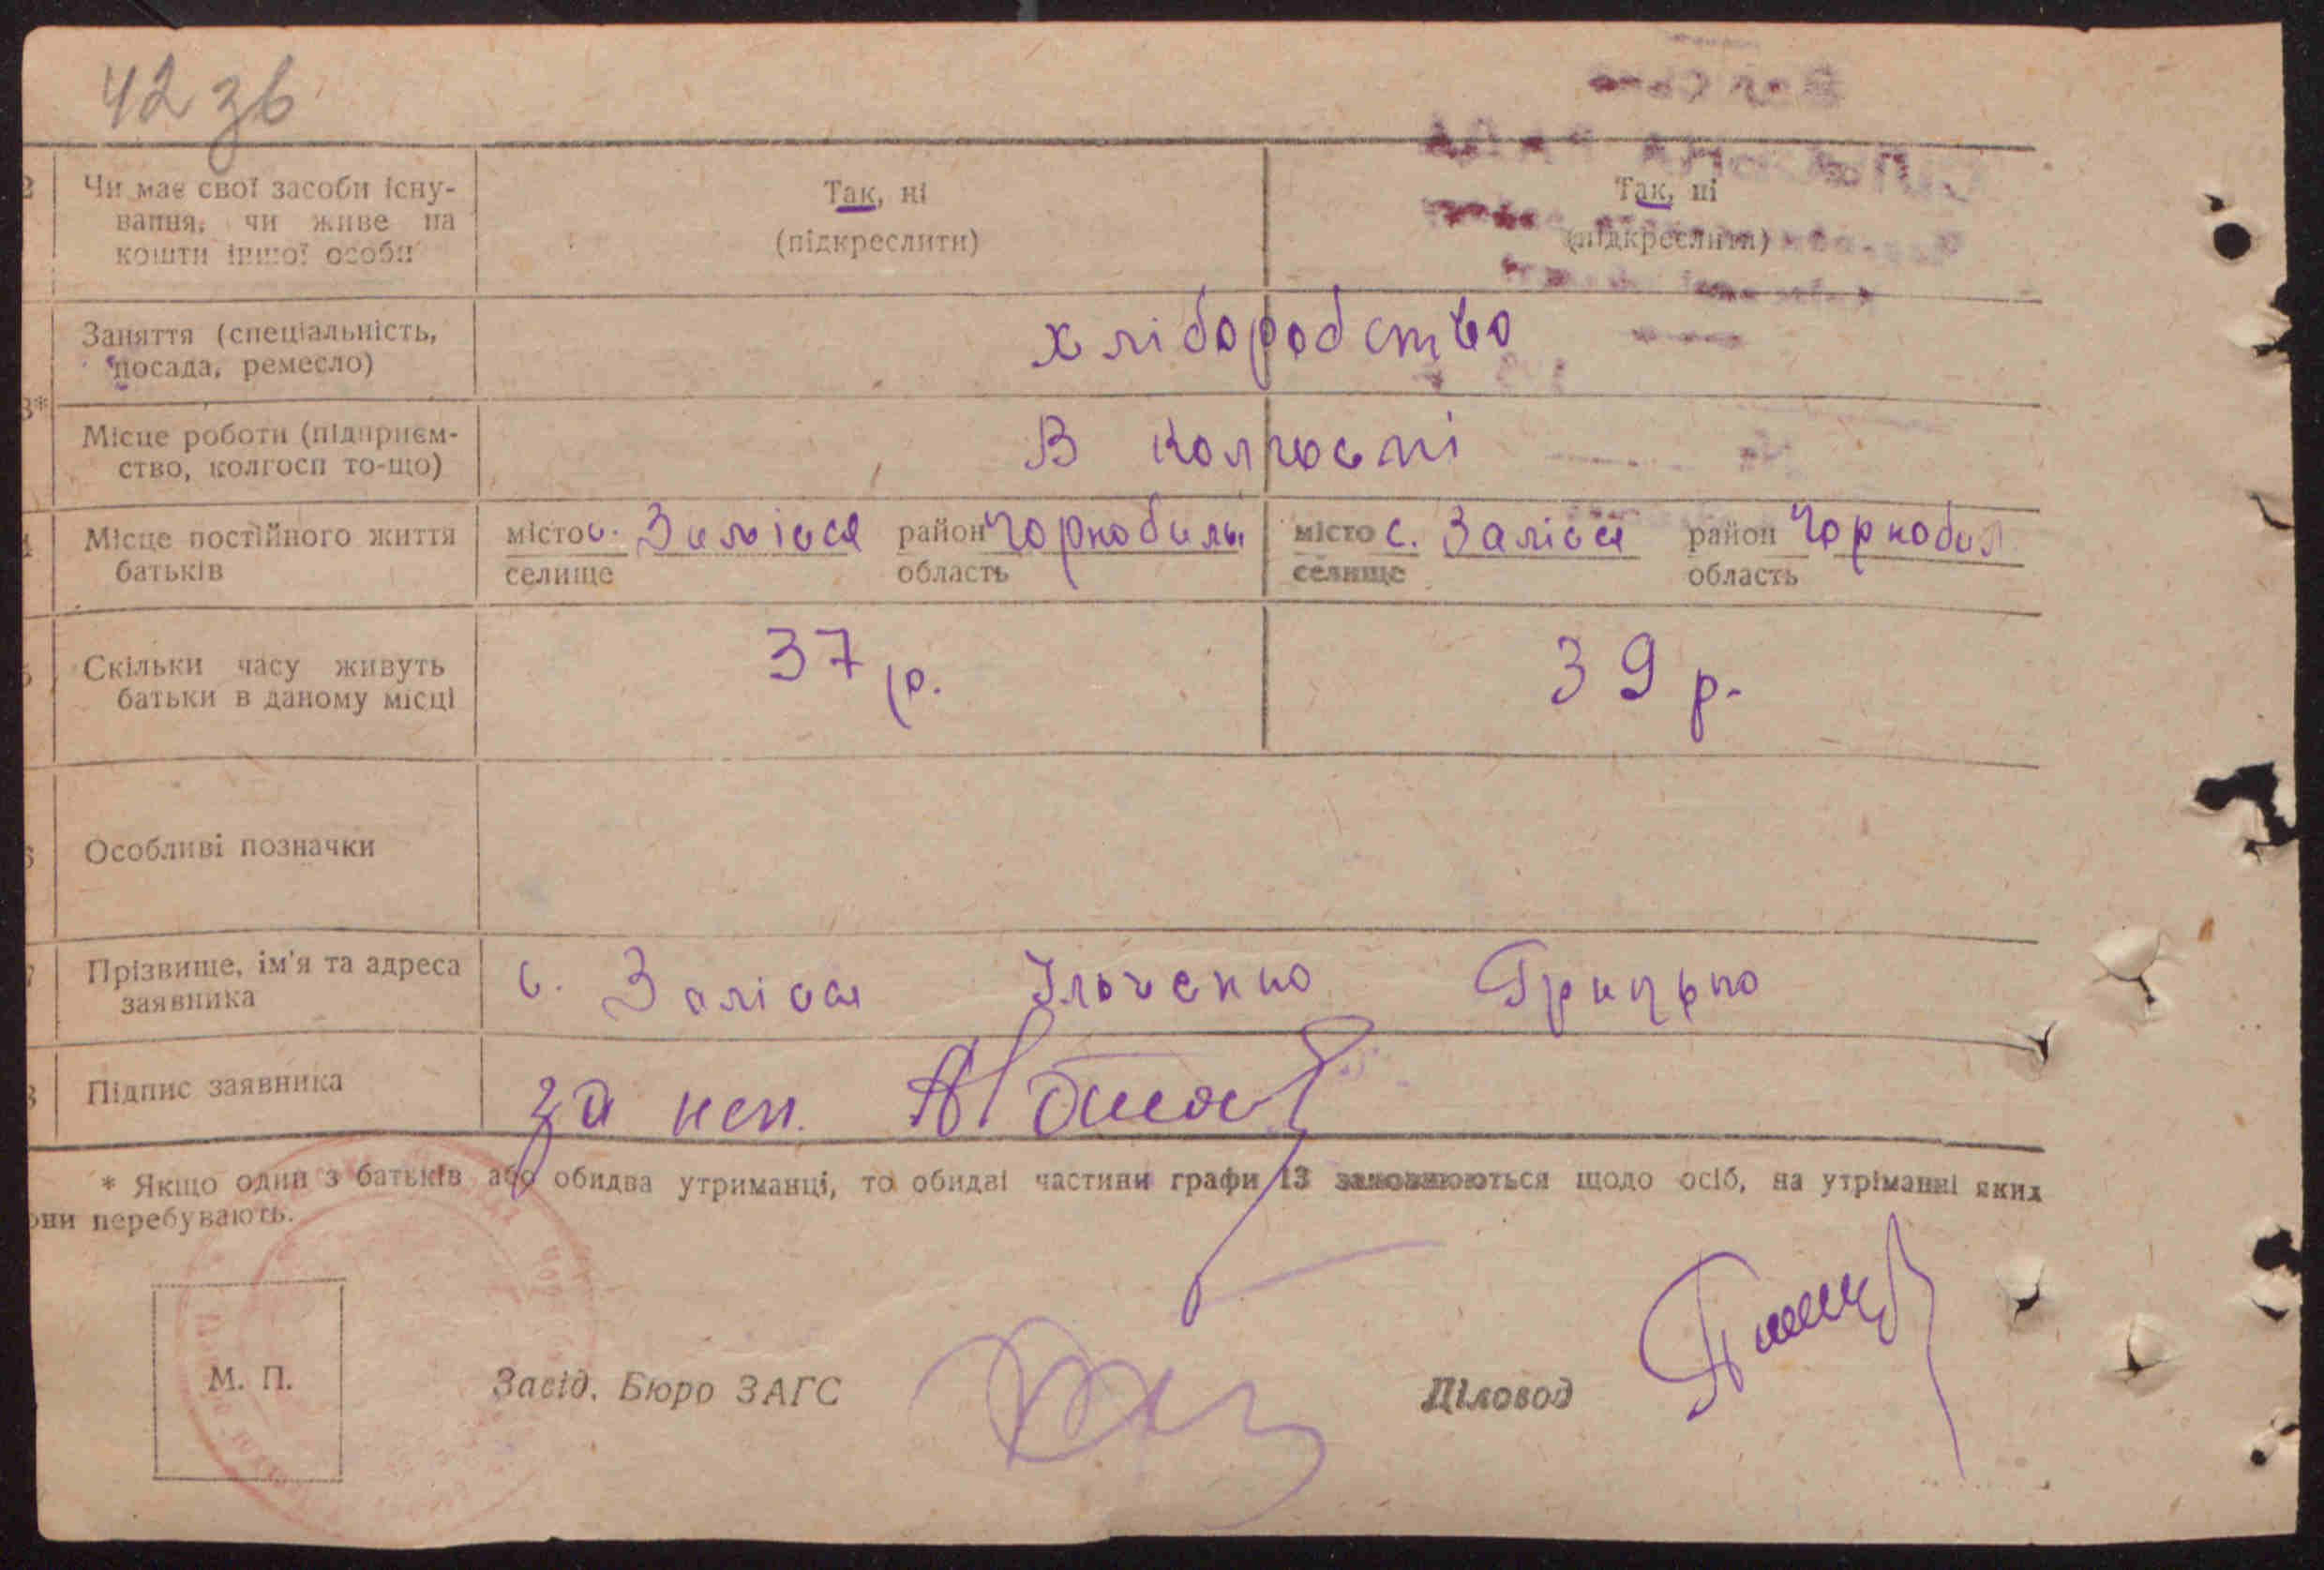 42 зв
2 Чи має свої засоби існу-
вання, чи живе на
кошти іншої особи
Так, ні
(підкреслити)
Так, ні
(підкреслити)
Заняття (спеціальність,
посада, ремесло)
хліборобство
3*
Місце роботи (підприєм-
ство, колгосп то-що)
В колгоспі
4 Місце постійного життя
батьків
місто с. Залісся район Чорнобиль
селище область
місто с. Залісся район Чорнобил
селище область
5 Скільки часу живуть
батьки в даному місці
37 р.
39 р.
6 Особливі позначки
7 Прізвище, ім'я та адреса
заявника
с. Залісся Ільченко Грицько
8 Підпис заявника
за неп.
* Якщо один з батьків або обидва утриманці, то обидві частини графи 13 заповнюються щодо осіб, на утріманні яких
они перебувають.
М. П.
Завід. Бюро ЗАГС
Діловод